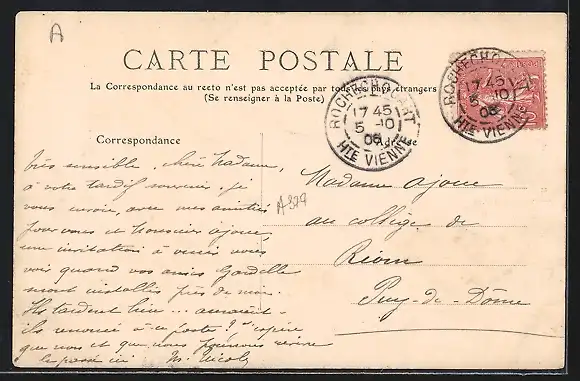 A
CARTE POSTALE
La Correspondance au recto n'est pas acceptée par tous les pays étrangers
(Se renseigner à la Poste)
ROCHECHOUART
17 45
5 -10
06
HTE VIENNE
ROCHECHOUART
17 45
5 -10
06
HTE VIENNE
Correspondance
Adresse
très sensible, chère Madame,
à votre tardif souvenir. je
vous envoie, avec mes amitiés
pour vous et Monsieur ajoue,
une invitation à venir nous
voir quand vos amis
seront installés près de moi.
Ils tardent bien ... auraient-
ils renoncé à ce poste? J'espère
que vous et que nous pourrons revivre
le passé ici M. Nicols
A329
Madame ajoue
au collège de
Riom
Puy-de-Dôme